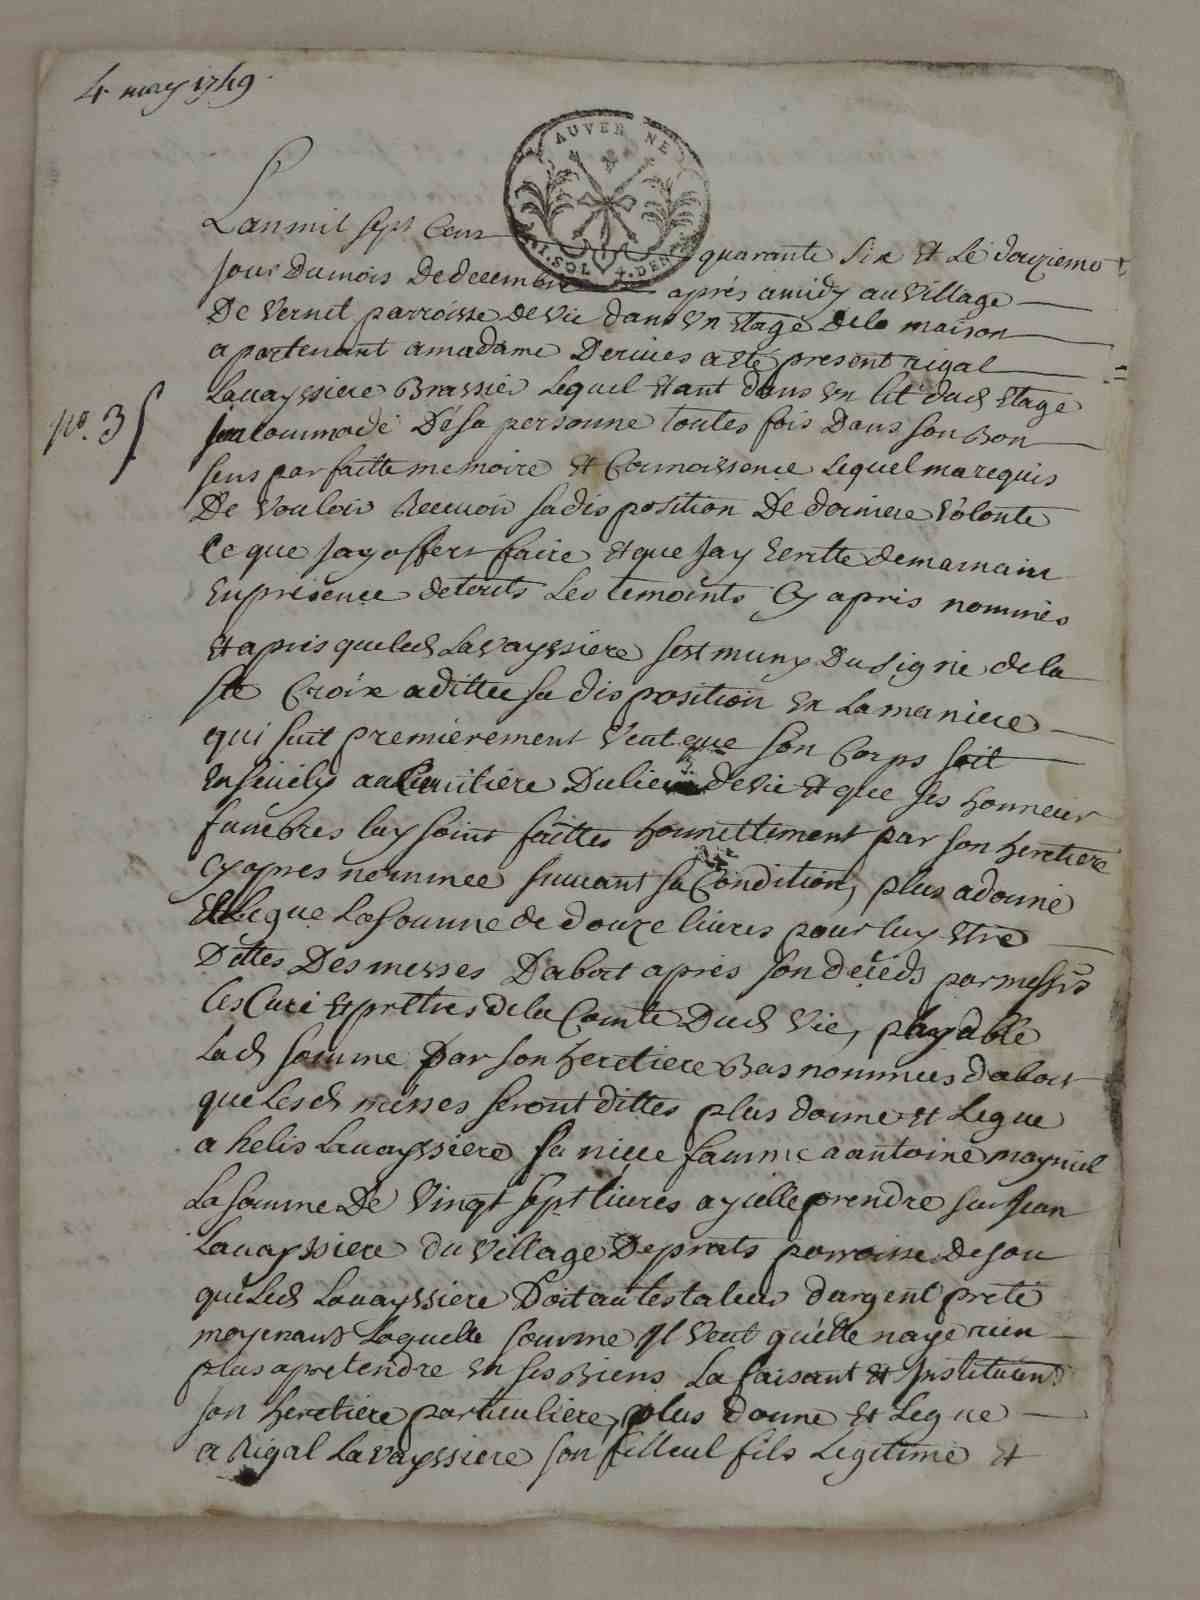 4 may 1749
AUVERGNE
SOL. 4. DEN
Lan mil sept Cens quarante six et Le douzieme
Jour Du mois De decembre apres amidy au village
De vernit parroisse de vic dans un Etage dela maison
apartenant a madame Derives a ete present rigal
Lavayssiere Brassier Lequel etant dans un lit dud Etage
no. 35
Incommodé De sa personne toutes fois Dans son Bon
sens parfaitte memoire et Connoissence Lequel ma requis
De vouloir Recevoir sa disposition De derniere volonte
Ce que Jay offert faire et que Jay Ecritte dema main
En presence de touts Les temoints Cy apres nommés
Et apres que led Lavayssiere sest muny Du signe de la
ste Croix a dittée sa disposition en La meniere
qui suit premierement veut que son Corps soit
Ensevely au Cimitiere Du lieu de vic et que ses honneur
funebres luy soint faittes honnettement par son heretiere
Cy apres nommee suivant sa Condition, plus a donné
Et Legue La somme de douze livres pour luy Etre
Dittes Des messes Dabort apres son deceds par messrs
Les Curé et pretres de la Comte Dud vic, payable
Lad somme par son heretiere Bas nommee dabort
que Lesd messes seront dittes plus donne et Legue
a helis Lavayssiere sa niece famme a antoine mayniel
La somme De vingt sept livres a y celle prendre sur Jean
Lavayssiere du village De prats parroisse De jou
que Led Lavayssiere Doit au testateur dargent preté
moyenant Laquelle somme Il veut quelle naye rien
plus a pretendre en ses Biens La faisant et Instituent
son heretiere particuliere, plus donne et Legue
a Rigal Lavayssiere son filleul fils Legitime et